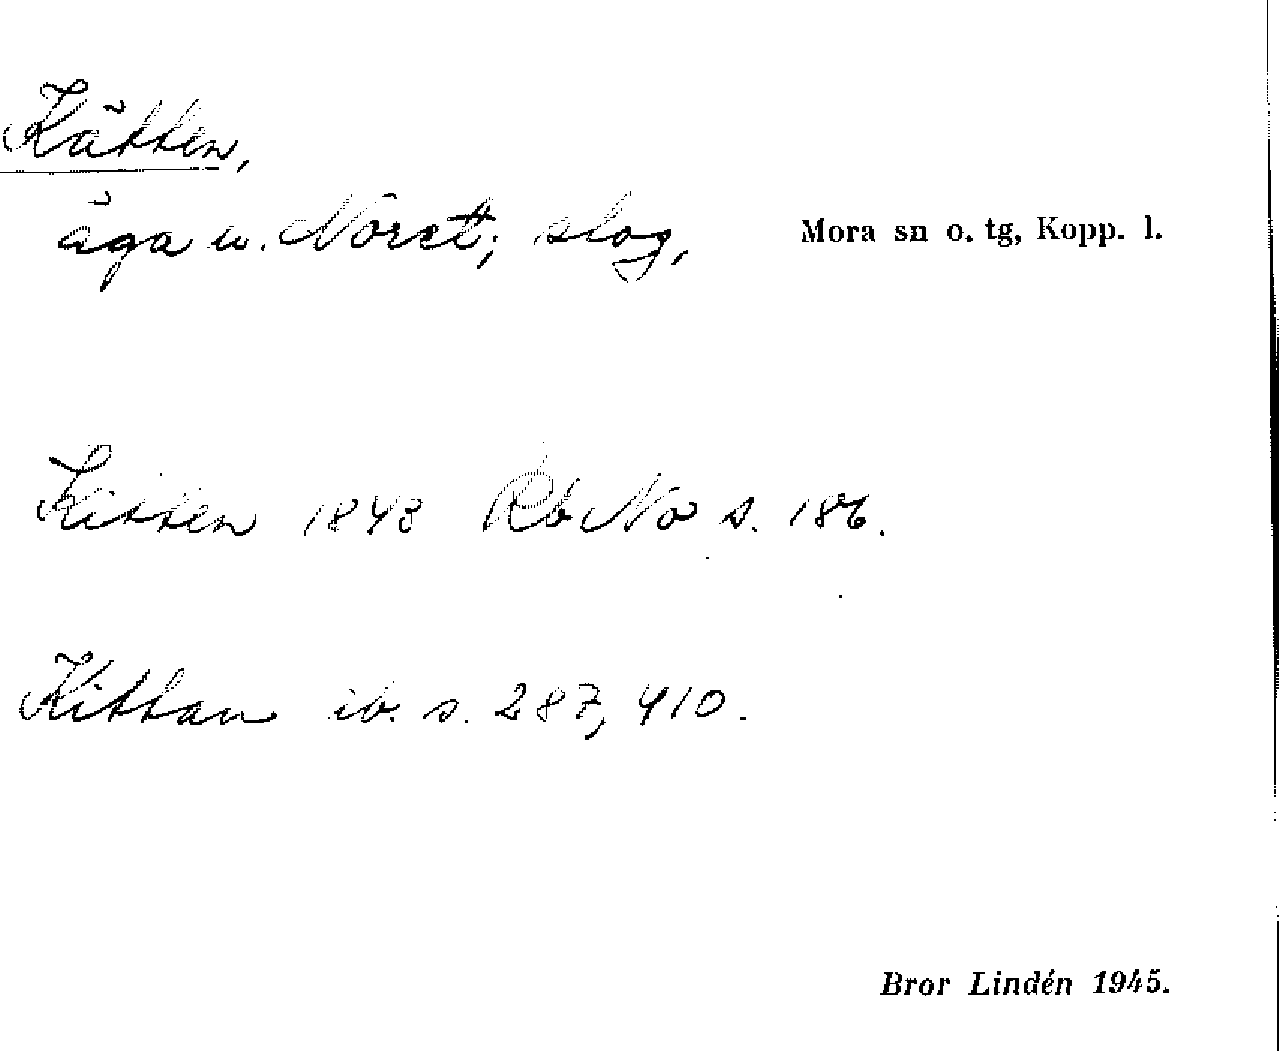 Kätten,
äga u. Noret; slog,
Mora sn o. tg, Kopp. l.
Kitten 1848 Rb No s. 186.
Kittan ib. s. 287, 410.
Bror Lindén 1945.